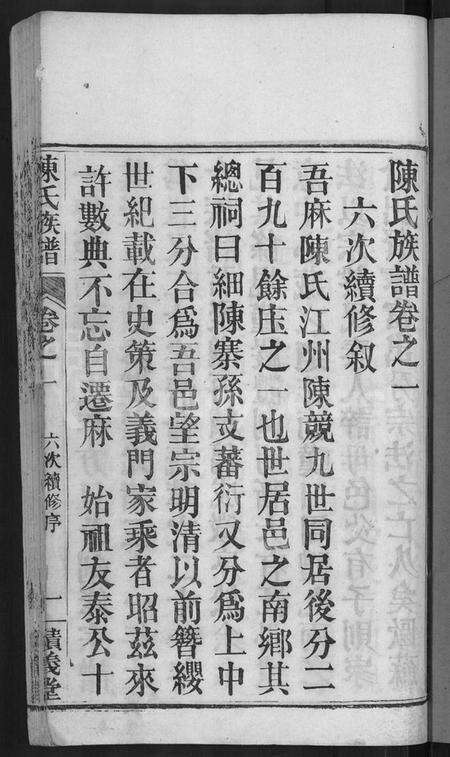 陳氏族譜卷之一
六次續修叙
吾麻陳氏江州陳競九世同居後分二
百九十餘庄之一也世居邑之南鄉其
總祠曰細陳寨孫支蕃衍又分爲上中
下三分合爲吾邑望宗明清以前簪纓
世紀載在史策及義門家乘者昭茲來
許數典不忘自遷麻 始祖友泰公十
陳氏族譜 卷之一 六次續修序 一 積義堂